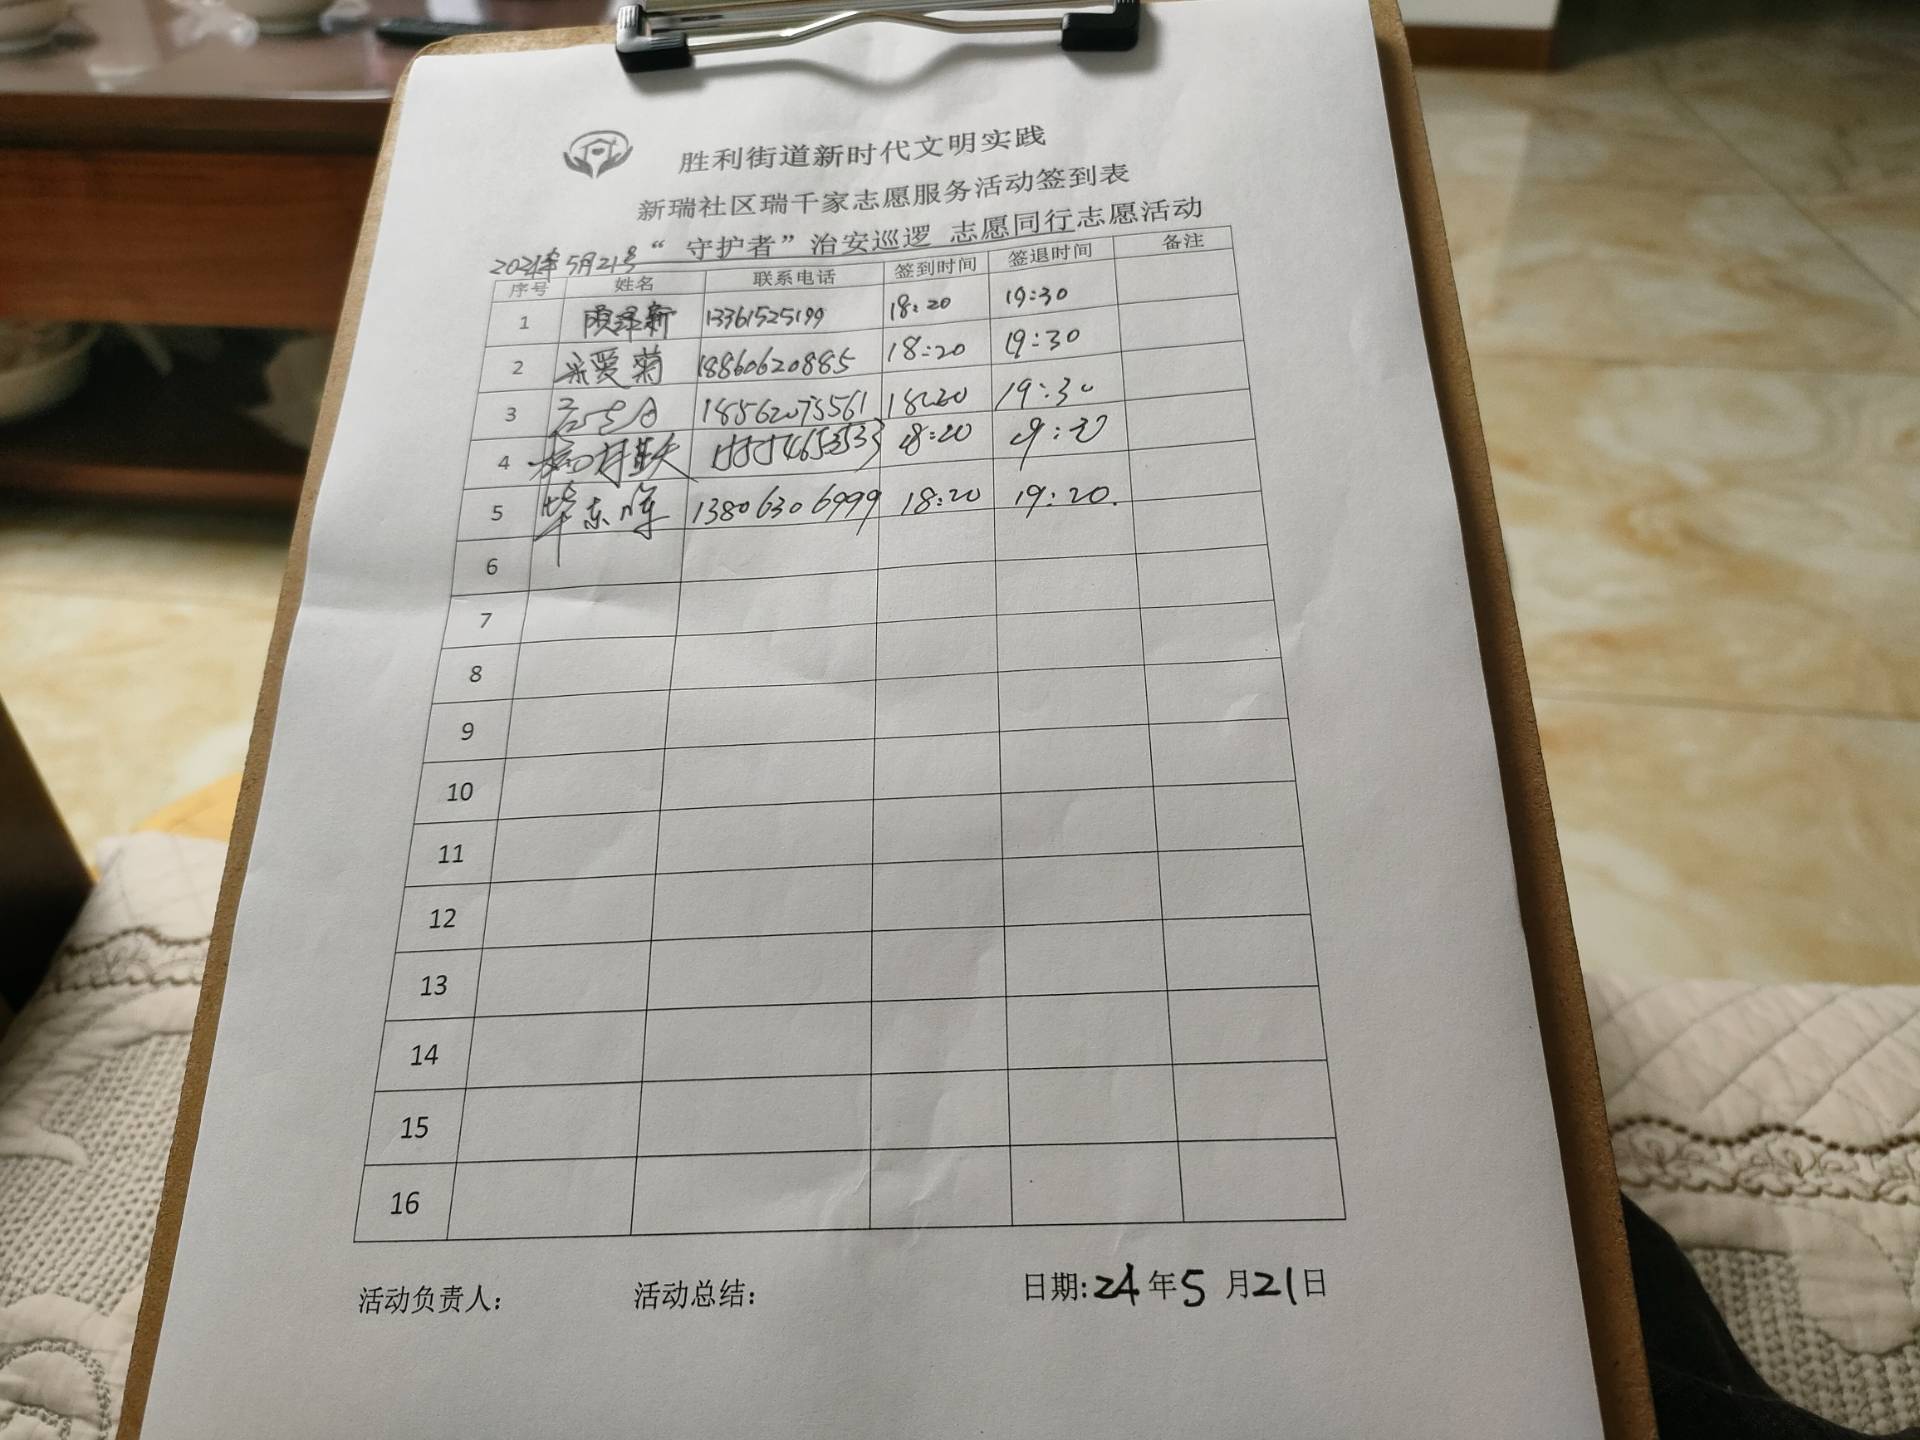 胜利街道新时代文明实践
新瑞社区瑞千家志愿服务活动签到表
2024年5月21号 “守护者”治安巡逻 志愿同行志愿活动
序号 姓名 联系电话 签到时间 签退时间 备注
1 13361525199 18:20 19:30
2 爱菊 18860620885 18:20 19:30
3 18562075561 18:20 19:30
4 18:20 19:30
5 毕东晖 13806306999 18:20 19:20.
6
7
8
9
10
11
12
13
14
15
16
活动负责人: 活动总结: 日期:24年5月21日